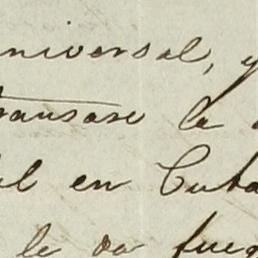 universal, y
transare la
el en Cuba
le da fueg